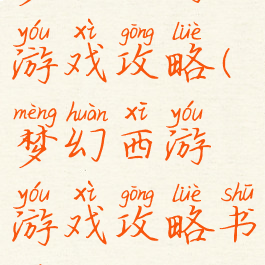 yóu xì gōng lüè
游戏攻略(
mèng huàn xī yóu
梦幻西游
yóu xì gōng lüè shū
游戏攻略书